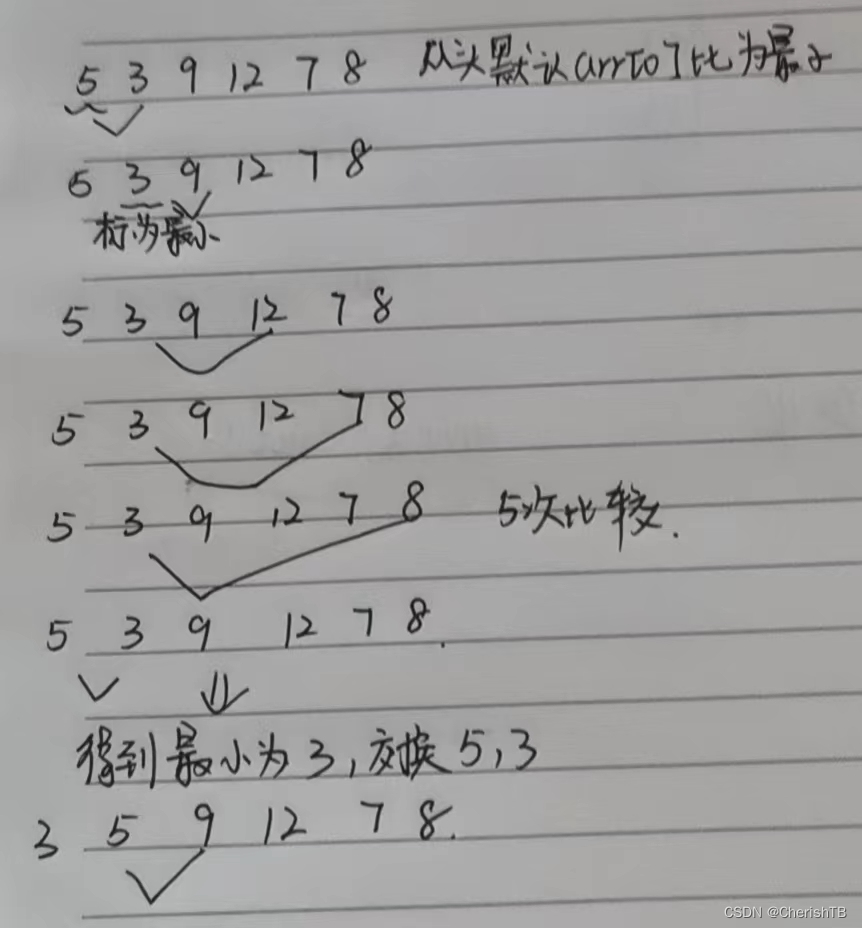 5 3 9 12 7 8 从头默认arr[0]比为最小
5 3 9 12 7 8
标为最小
5 3 9 12 7 8
5 3 9 12 7 8
5 3 9 12 7 8 5次比较.
5 3 9 12 7 8.
得到最小为3,交换5,3
3 5 9 12 7 8.
CSDN @CherishTB